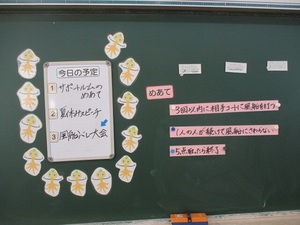 今日の予定
1 サポートルームの
めあて
2 夏休みスピーチ
3 風船バレー大会
めあて
3回以内に相手コートに風船を打つ
1人の人が続けて風船にさわらない…
5点取ったら終了